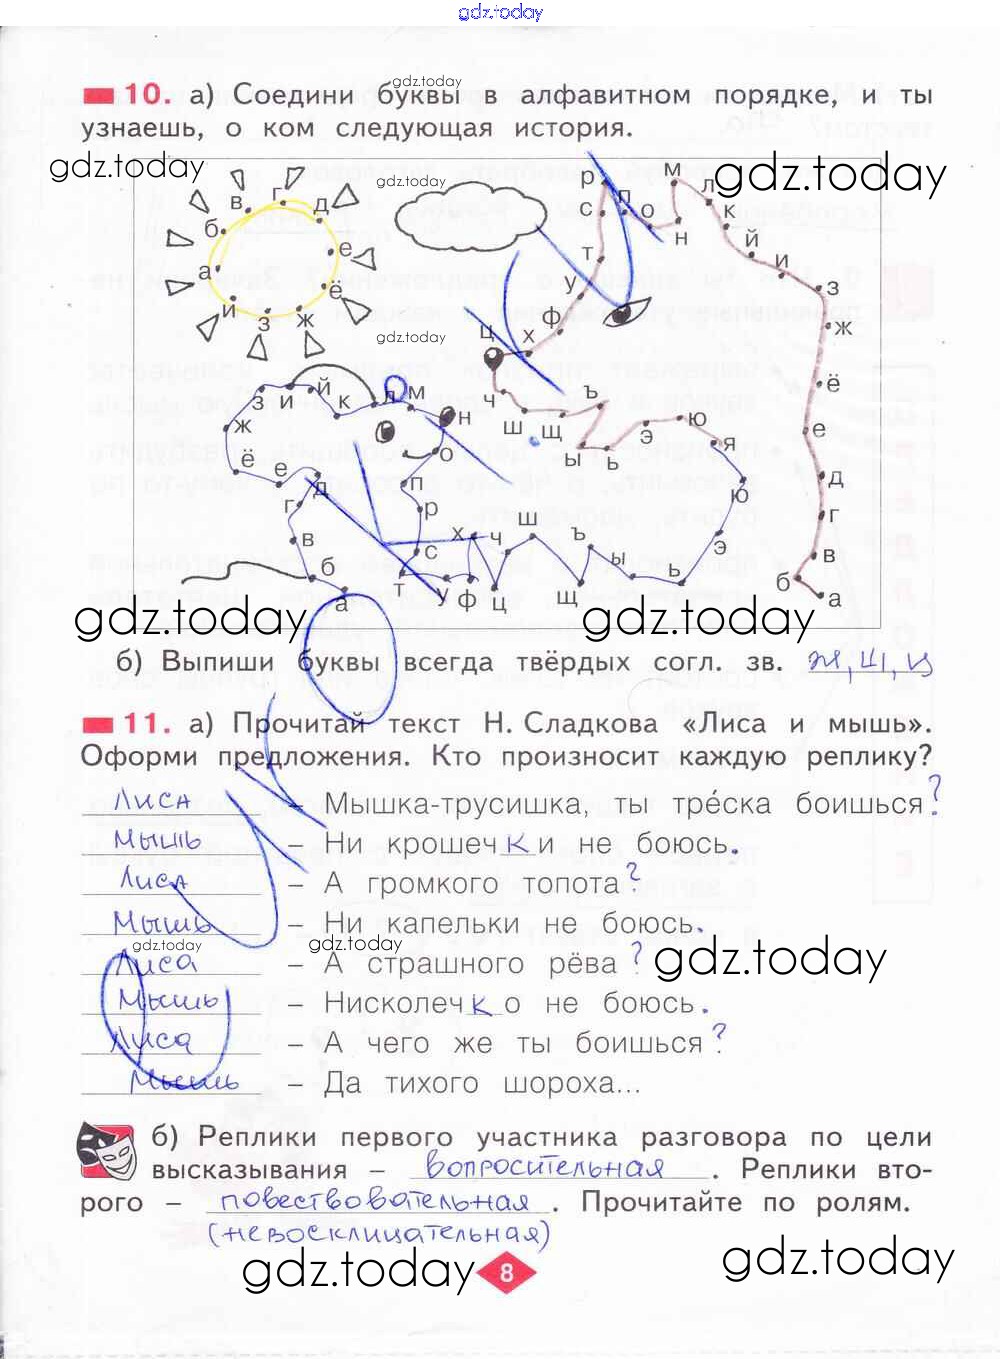 gdz.today
10. а) Соедини буквы в алфавитном порядке, и ты
gdz.today
узнаешь, о ком следующая история.
gdz.today
gdz.today
gdz.today
а б в г д е ё ж з и
gdz.today
р п о н м л к й и з ж ё е д г в б а
с т у ф х ц ч ш щ ъ ы ь э ю я
а б в г д е ё ж з и й к л м н о п р с т у ф х ц ч ш щ ъ ы ь э ю
gdz.today
gdz.today
б) Выпиши буквы всегда твёрдых согл. зв. ж, ш, ц
11. а) Прочитай текст Н. Сладкова «Лиса и мышь».
Оформи предложения. Кто произносит каждую реплику?
Лиса – Мышка-трусишка, ты трéска боишься?
Мышь – Ни крошечки не боюсь.
Лиса – А громкого топота?
Мышь – Ни капельки не боюсь.
gdz.today
gdz.today
gdz.today
Лиса – А страшного рёва?
Мышь – Нисколечко не боюсь.
Лиса – А чего же ты боишься?
Мышь – Да тихого шороха...
б) Реплики первого участника разговора по цели
высказывания – вопросительная. Реплики вто-
рого – повествовательная. Прочитайте по ролям.
(невосклицательная)
gdz.today
8
gdz.today